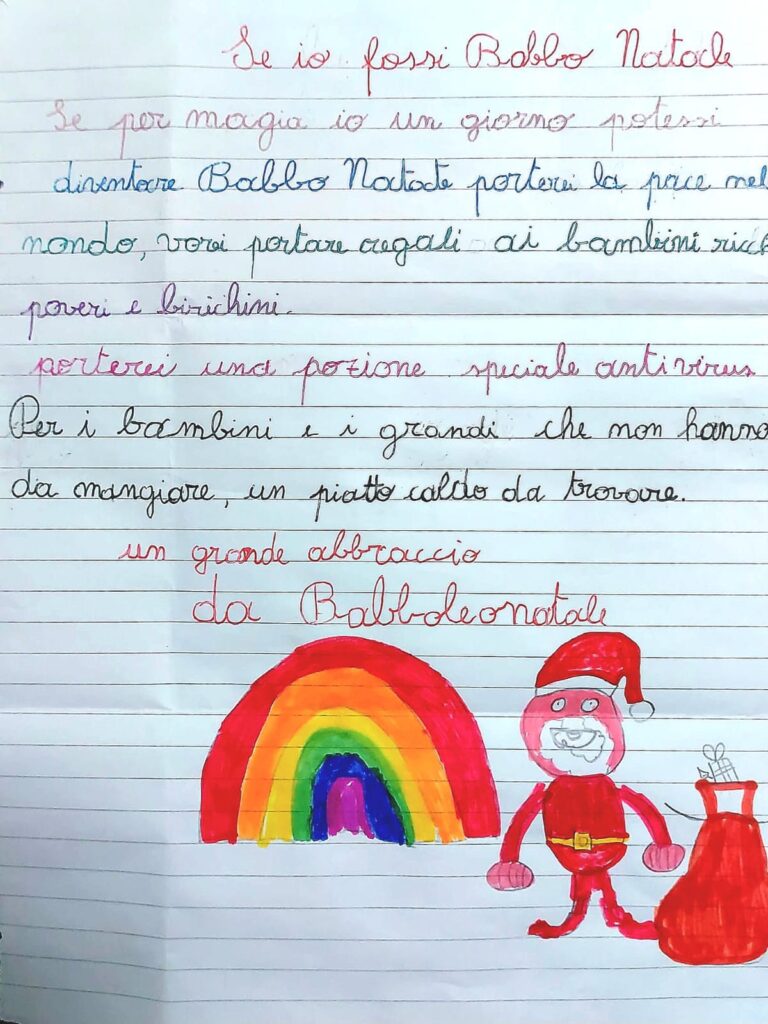 Se io fossi Babbo Natale
Se per magia io un giorno potessi
diventare Babbo Natale porterei la pace nel
mondo, vorei portare regali ai bambini ricch
poveri e birichini.
porterei una pozione speciale antivirus
Per i bambini e i grandi che non hanno
da mangiare, un piatto caldo da trovare.
un grande abbraccio
da Babboleonatale